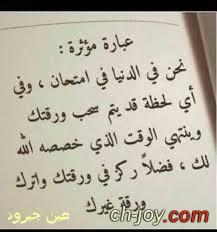 عبارة مؤثرة :
نحن في الدنيا في امتحان ، وفي
أي لحظة قد يتم سحب ورقتك
وينتهي الوقت الذي خصصه الله
لك ، فضلاً ركز في ورقتك واترك
ورقة غيرك
عين جيرود
ch-joy.com